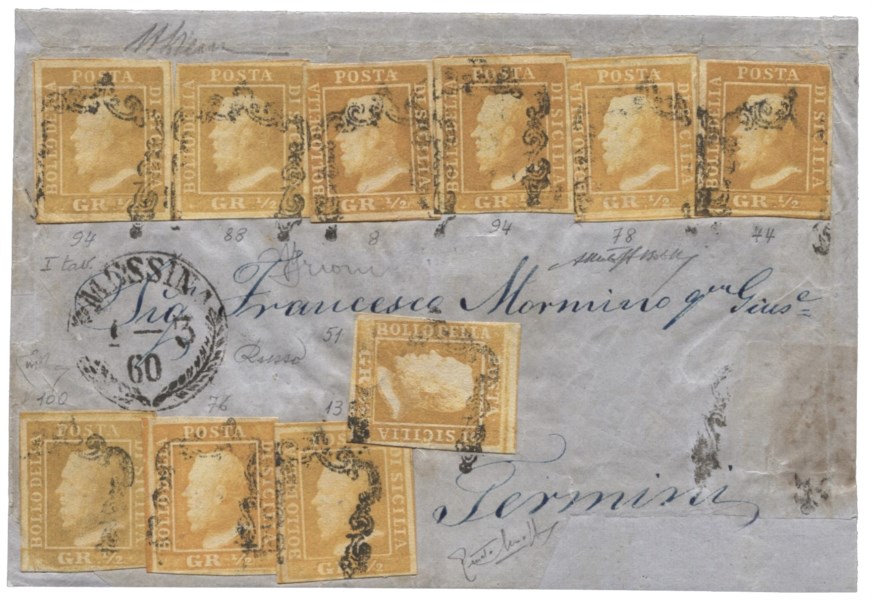 POSTA POSTA POSTA POSTA POSTA POSTA
BOLLO DELLA BOLLO DELLA BOLLO DELLA BOLLO DELLA BOLLO DELLA BOLLO DELLA
DI SICILIA DI SICILIA DI SICILIA DI SICILIA DI SICILIA DI SICILIA
GR. 1/2 GR. 1/2 GR. 1/2 GR. 1/2 GR. 1/2 GR. 1/2
94 83 8 94 78 44
I tav.
MESSINA
1 — 3
60
Sig Francesco Mormino qm Giuse
51
Russo
BOLLO DELLA
POSTA
DI SICILIA
100 76 13
POSTA POSTA POSTA
BOLLO DELLA BOLLO DELLA BOLLO DELLA
DI SICILIA DI SICILIA DI SICILIA
GR. 1/2 GR. 1/2 GR. 1/2
Termini